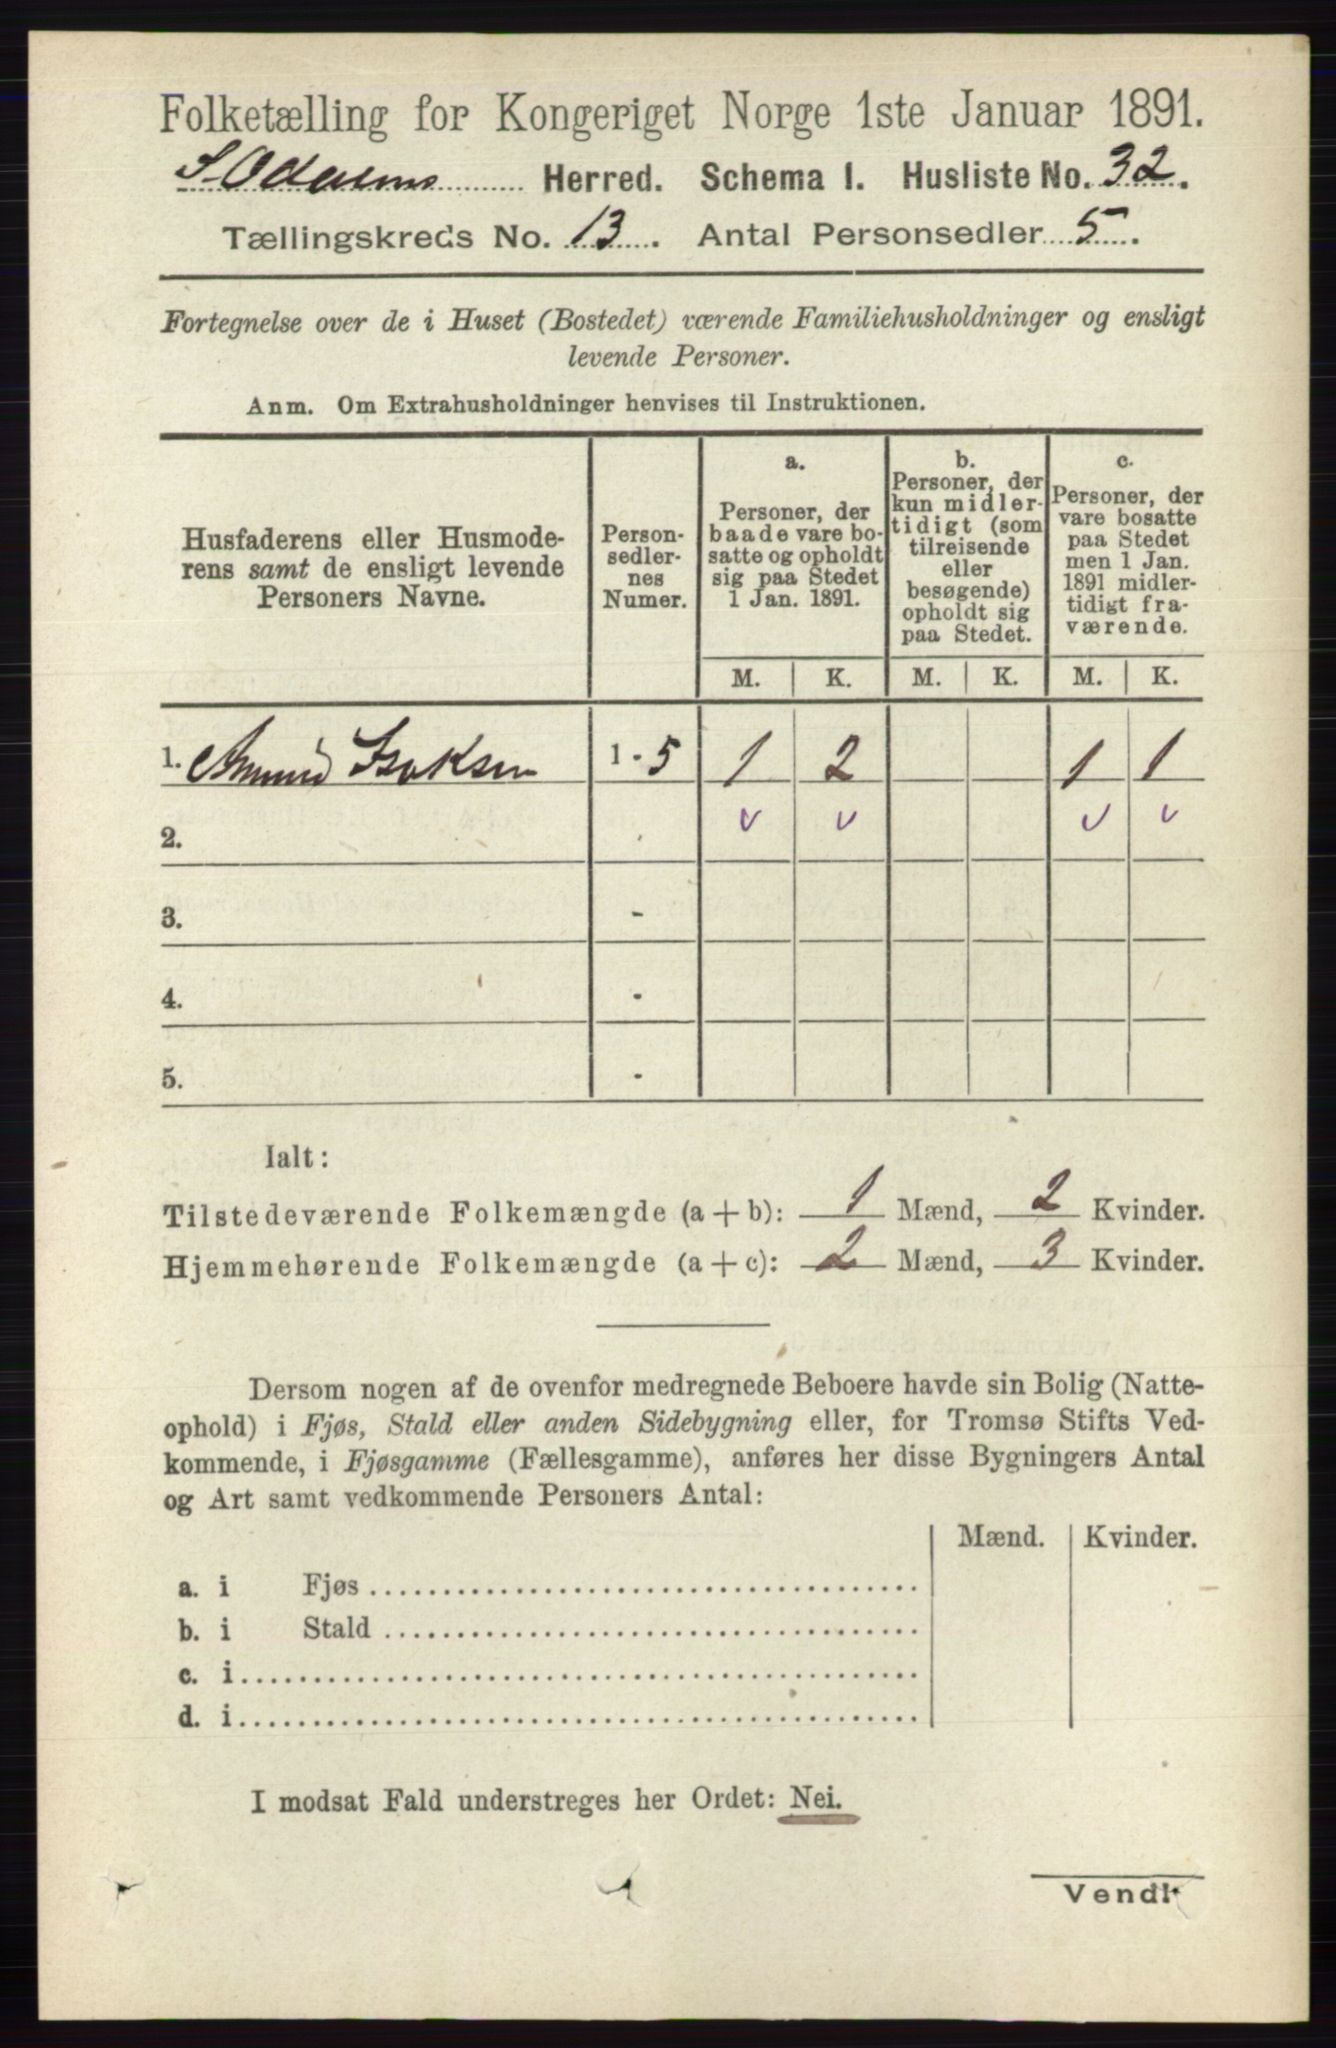 Folketælling for Kongeriget Norge 1ste Januar 1891.
S. Odalens Herred. Schema 1. Husliste No. 32.
Tællingskreds No. 13. Antal Personsedler 5.
Fortegnelse over de i Huset (Bostedet) værende Familiehusholdninger og ensligt
levende Personer.
Anm. Om Extrahusholdninger henvises til Instruktionen.
Husfaderens eller Husmode-
rens samt de ensligt levende
Personers Navne.
Person-
sedler-
nes
Numer.
a.
Personer, der
baade vare bo-
satte og opholdt
sig paa Stedet
1 Jan. 1891.
b.
Personer, der
kun midler-
tidigt (som
tilreisende
eller
besøgende)
opholdt sig
paa Stedet.
c.
Personer, der
vare bosatte
paa Stedet
men 1 Jan.
1891 midler-
tidigt fra-
værende.
M. K. M. K. M. K.
1. Amund Isaksen 1 - 5 1 2 1 1
2. v v v v
3. -
4. -
5. -
Ialt:
Tilstedeværende Folkemængde (a + b): 1 Mænd, 2 Kvinder.
Hjemmehørende Folkemængde (a + c): 2 Mænd, 3 Kvinder.
Dersom nogen af de ovenfor medregnede Beboere havde sin Bolig (Natte-
ophold) i Fjøs, Stald eller anden Sidebygning eller, for Tromsø Stifts Ved-
kommende, i Fjøsgamme (Fællesgamme), anføres her disse Bygningers Antal
og Art samt vedkommende Personers Antal:
Mænd. Kvinder.
a. i Fjøs
b. i Stald
c. i
d. i
I modsat Fald understreges her Ordet: Nei.
Vend!